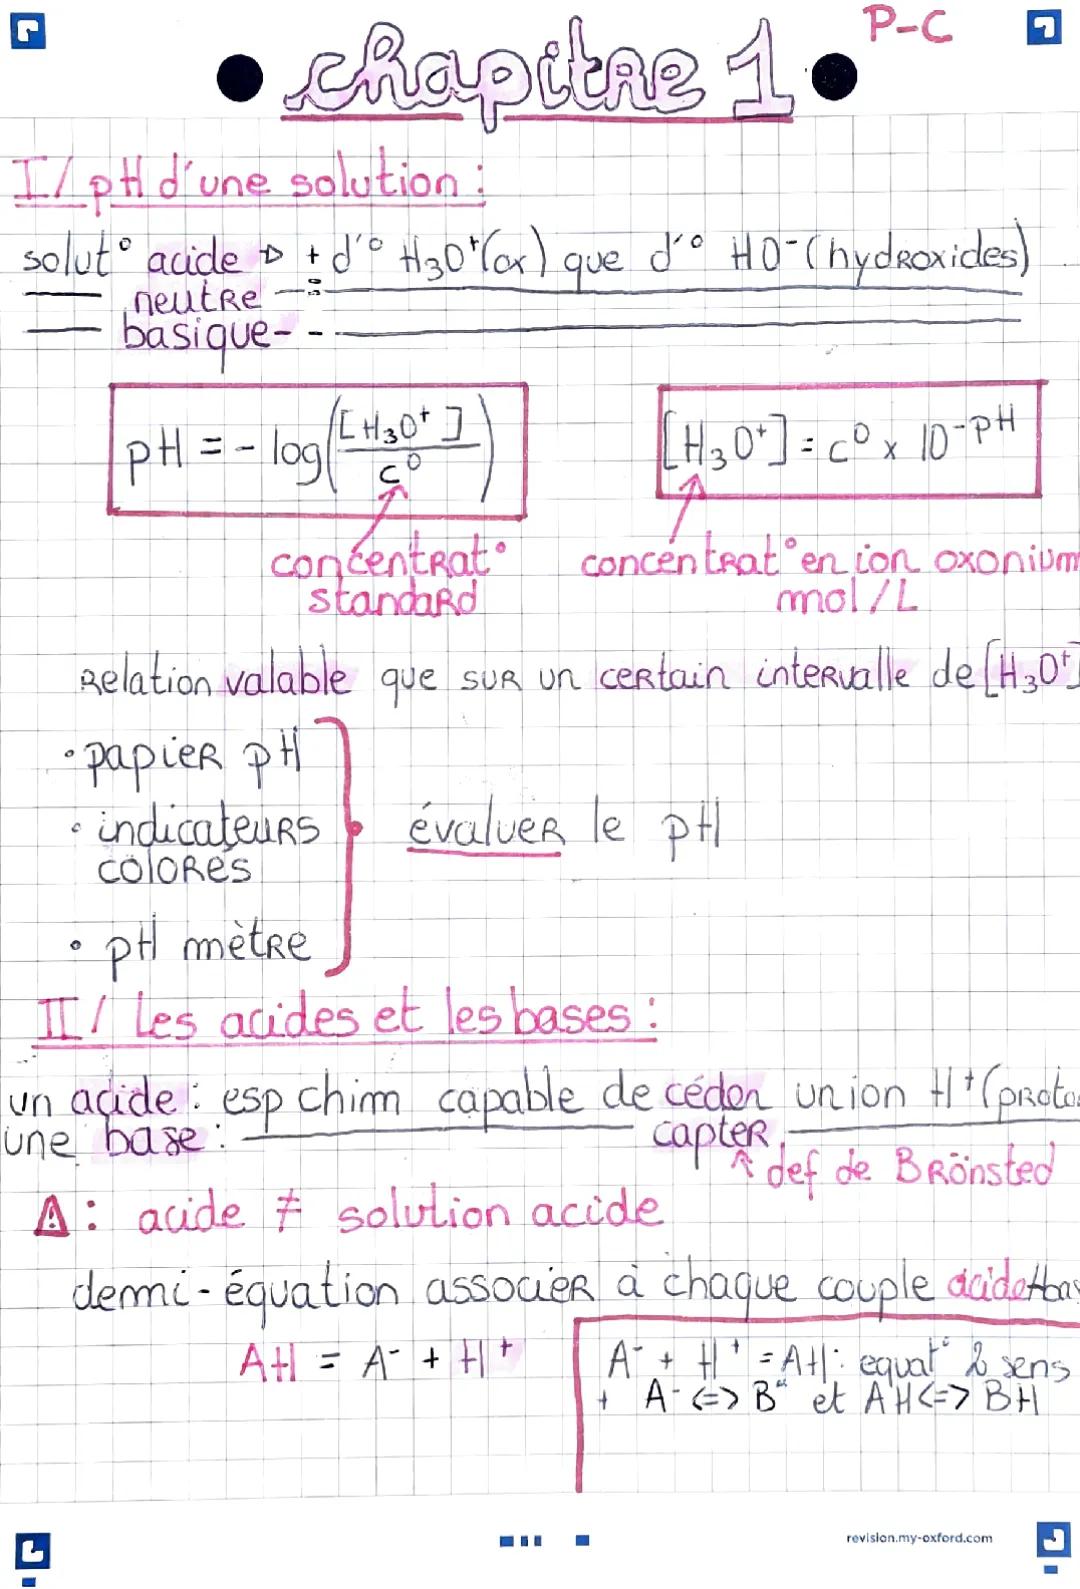 P-C
chapitre 1
I/ pH d'une solution :
solut° acide → + d'° H₃O⁺(ox) que d'° HO⁻ (hydroxides)
neutre =
basique - -
pH = - log([H₃O⁺]/c⁰)
[H₃O⁺] = c⁰ x 10^-pH
concentrat° standard
concentrat° en ion oxonium
mol/L
Relation valable que sur un certain intervalle de [H₃O⁺]
• papier pH
• indicateurs
colorés
évaluer le pH
• pH mètre
II/ Les acides et les bases :
un acide : esp chim capable de céder un ion H⁺ (proto
une base : capter
def de Brönsted
⚠ : acide ≠ solution acide
demi-équation associer à chaque couple acide/bas
AH = A⁻ + H⁺
A⁻ + H⁺ = AH : equat° 2 sens
+ A⁻ <=> B⁻ et AH <=> BH
revision.my-oxford.com